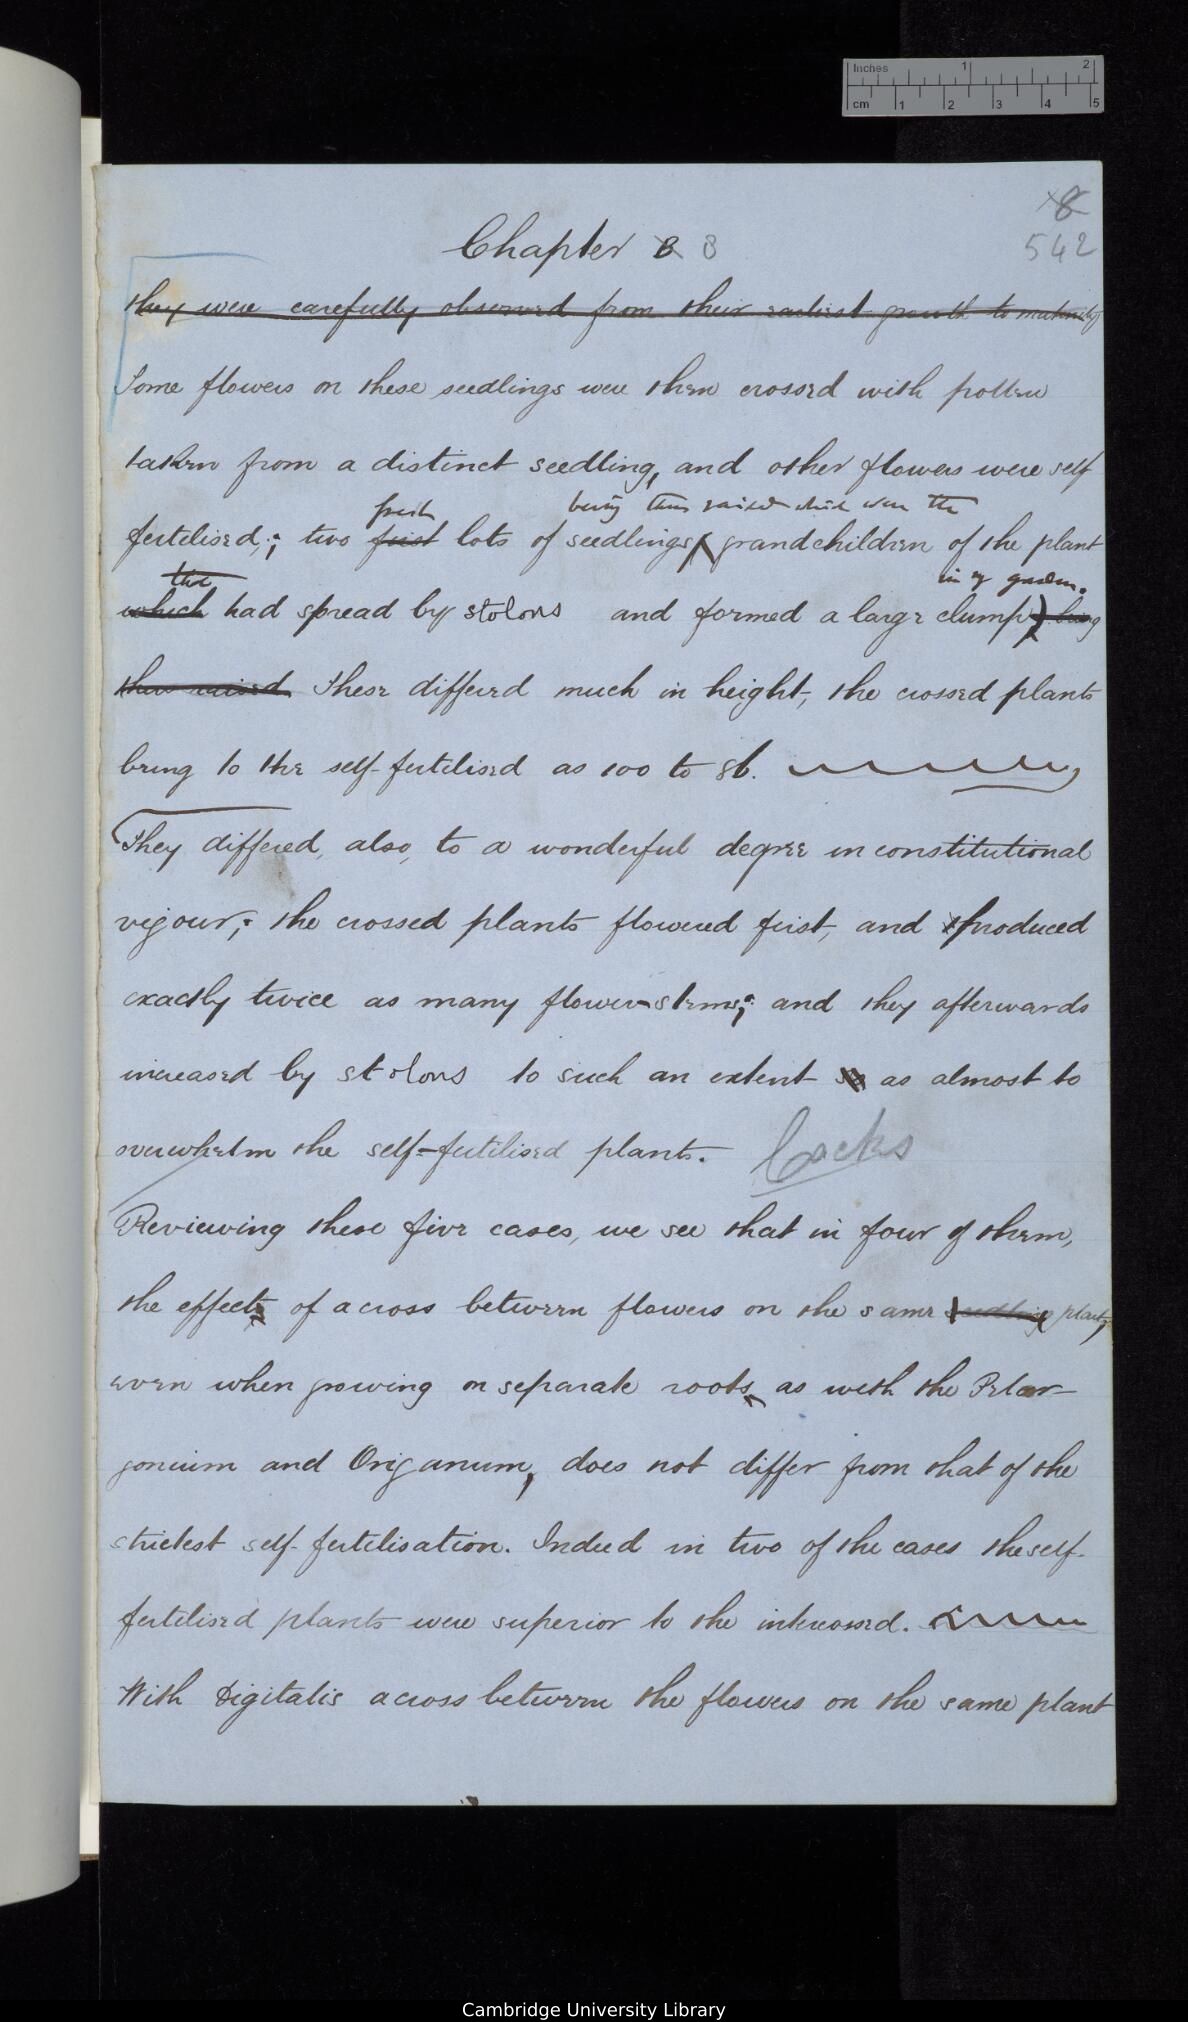 Inches 1 2
cm 1 2 3 4 5
8
542
Chapter 8 8
they were carefully observed from their earliest growth to maturity
Some flowers on these seedlings were then crossed with pollen
taken from a distinct seedling, and other flowers were self
fresh being thus raised which were the
fertilised; two first lots of seedlings, grandchildren of the plant
the in my garden.
which had spread by stolons and formed a large clump) being
thus raised These differed much in height, the crossed plants
being to the self-fertilised as 100 to 86.
They differed, also, to a wonderful degree in constitutional
vigour; the crossed plants flowered first, and produced
exactly twice as many flower-stems; and they afterwards
increased by stolons to such an extent so as almost to
overwhelm the self-fertilised plants. Cocks
Reviewing these five cases, we see that in four of them,
the effects of a cross between flowers on the same seedling plant,
even when growing on separate roots, as with the Pelar-
gonium and Origanum, does not differ from that of the
strictest self-fertilisation. Indeed in two of the cases the self-
fertilised plants were superior to the intercrossed.
With Digitalis a cross between the flowers on the same plant
Cambridge University Library